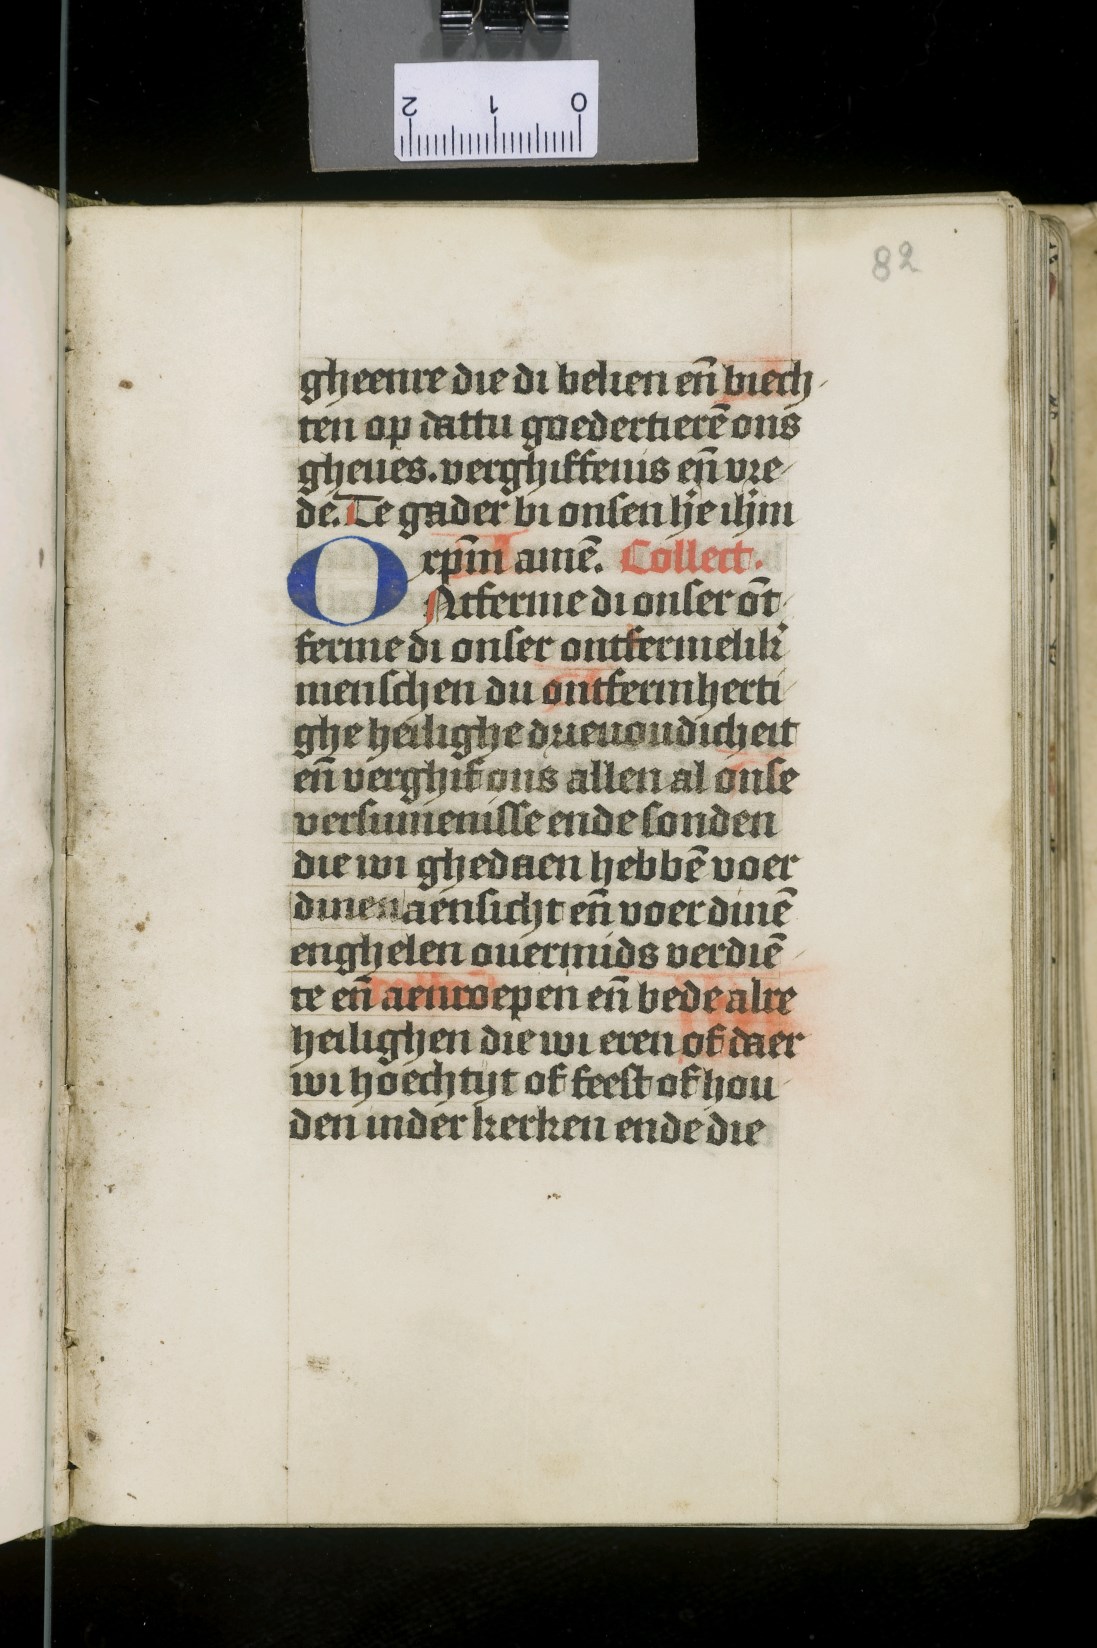 2 1 0
82
gheenre die di belien en̄ biech
ten op dattu goedertierē ons
gheues. verghiffenis en̄ vre
de. Te gader bi onsen h̄e ih̄m
xp̄m amē. Collect.
ONtferme di onser ōt
ferme di onser ontfermelik̄
menschen du ontfermherti
ghe heilighe drieuoudicheit
en̄ verghif ons allen al onse
versumenisse ende sonden
die wi ghedaen hebbē voer
dinen aensicht en̄ voer dinē
enghelen ouermids verdiē
te en̄ aenroepen en̄ bede alre
heilighen die wi eren of daer
wi hoechtijt of feest of hou
den inder kerken ende die